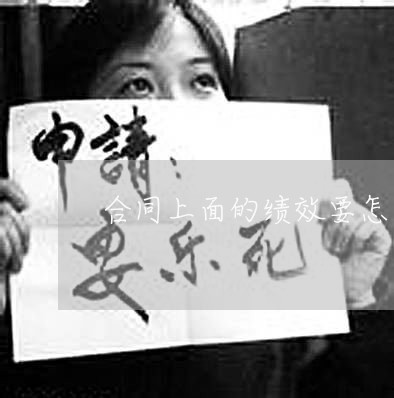 申請：
合同上面的绩效要怎
安乐死